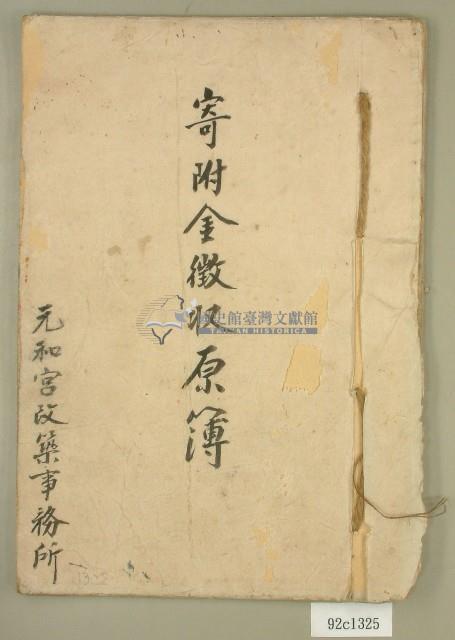 寄附金徴収原簿
元和宮改築事務所
史館臺灣文獻館
TAIWAN HISTORICA
92c1325